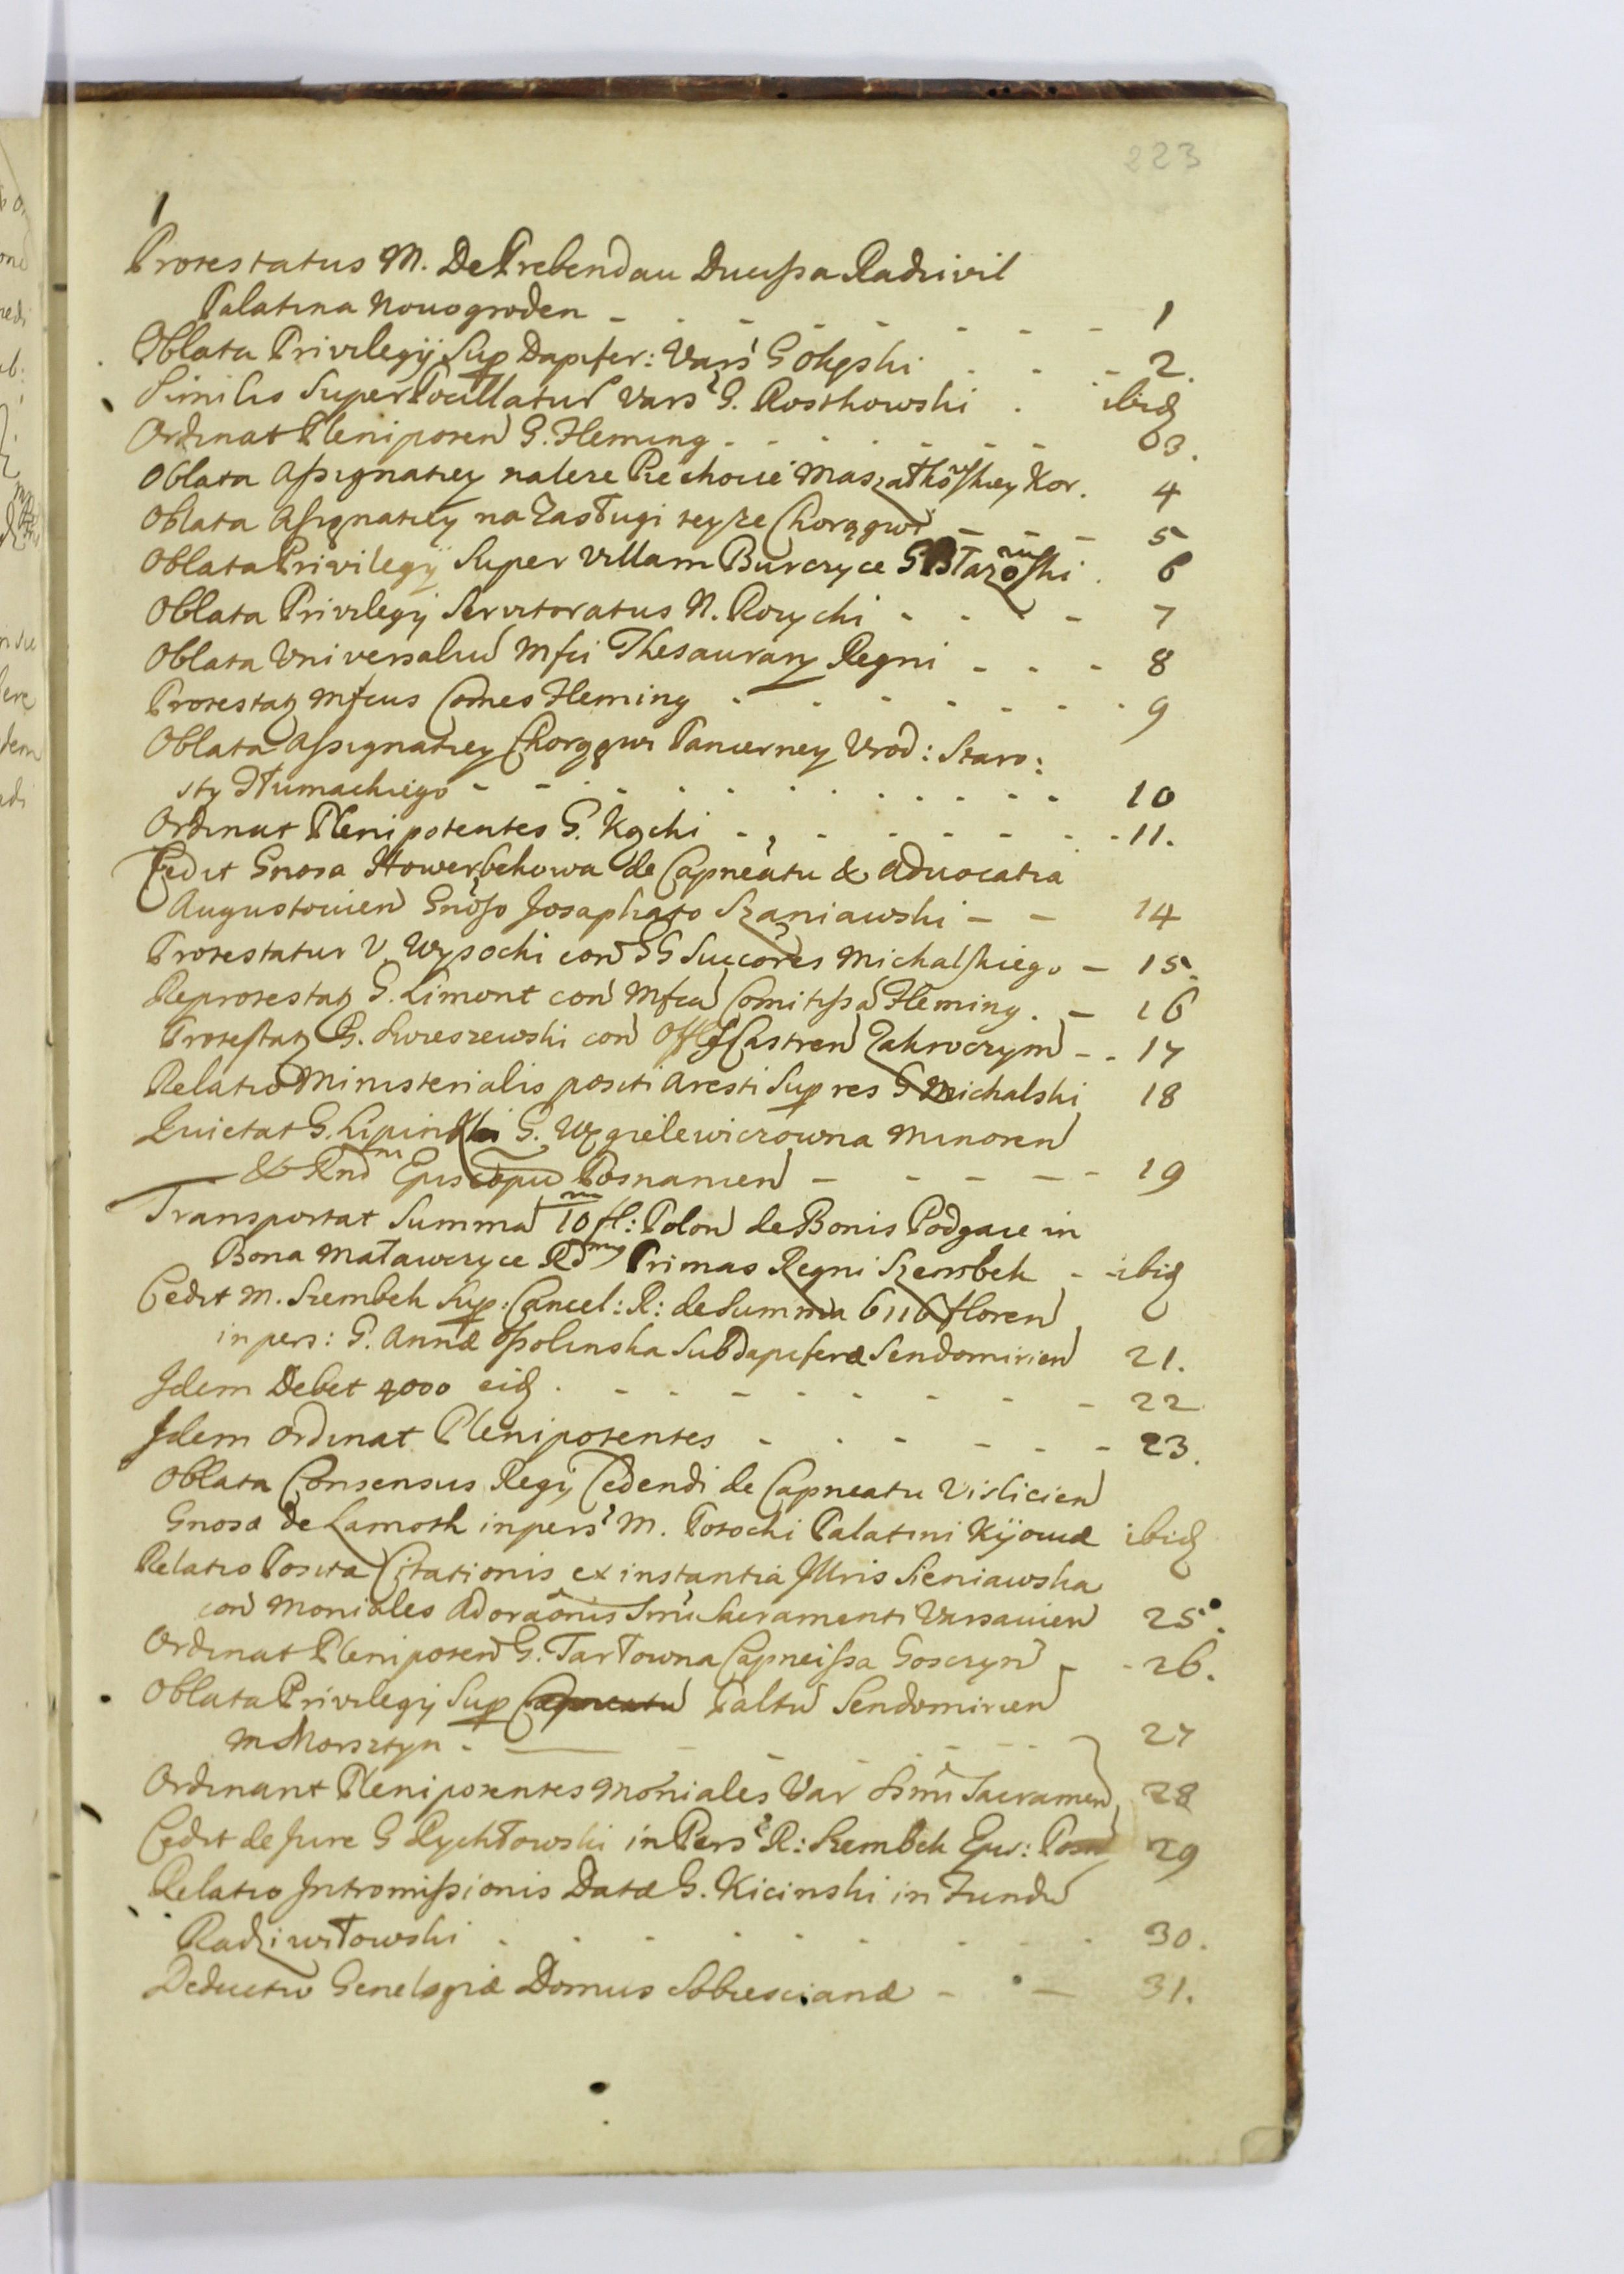 223
1
Protestatur M. De Prebendau Ducissa Radzivil
Palatina Nouogroden - - - - - - - - 1
Oblata Privilegÿ Sup Dapifer: Vars G - - - 2.
Similis Super Pocillatur Vars G. Rostkowski . ibid
Ordinat Plenipoten G. Fleming - - - - - - 3.
Oblata Assignatiey na Marszałkowskiey Kor. 4
Oblata Assignatiey na Zasługi teyze Chorągwi - - - 5
Oblata Privilegÿ Super Villam Burczyce G Błazowski . 6
Oblata Privilegij Servitoratus N. Rozycki - - - - 7
Oblata Universaliu Mfci Thesaurarÿ Regni - - - 8
Protestat Mfcus Comes Fleming - - - - - - - 9
Oblata Assignatiey Chorągwi Pancerney Urod: Staro:
sty Tłumackiego - - - - - - - - - - 10
Ordinat Plenipotentes G. Kącki - - - - - - 11.
Cedit Gnosa Howerbekowa de Capneatu & Aduocatia
Augustouien Gnoso Josaphato Szaniawski - - 14
Protestatur V. Wysocki con GG Succores Michalskiego - 15.
Reprotestat G. Limont con Mfca Comitissa Fleming . - 16
Protestat G. con Offi Castren Zakroczym - - 17
Relatio Ministerialis positi Aresti Sup res G Michalski 18
Quietat G. Lipinski G. Węgielewiczowna Minoren
& Rnd Episcopu Posnanien - - - - - 19
Transportat Summa 10 fl: Polon de Bonis Podgaie in
Bona Maławeryce Rd Primas Regni Szembek - - ibid
Cedit M. Szembek Sup: Cancel: R: de Summa 6116 floren
in pers: G. Annæ Ossolinska Subdapiferæ Sendomirien 21.
Idem Debet 4000 eid . - - - - - - - 22
Idem Ordinat Plenipotentes - - - - - - 23.
Oblata Consensus Regÿ Cedendi de Capneatu Vislicien
Gnosæ de Lamoth in pers M. Potocki Palatini Kÿouiæ ibid
Relatio Posita Citationis ex instantia Illris Sieniawska
con Moniales Adoraonis Smi Sacramenti Varsauien 25.
Ordinat Plenipoten G. Tarłowna Capneissa Goszczyn - - 26.
Oblata Privilegij Sup Capneatu Paltu Sendomirien
M Morsztyn - - - - - - 27
Ordinant Plenipotentes Moniales Var Ssmi Sacramen 28
Cedit de Jure G Rychłowski in Pers R: Szembek Epis: Posn 29
Relatio Intromissionis Datæ G. Kicinski in Fundu
Radziwiłowski - - - - - - - - 30.
Deductio Genelogiæ Domus Sobiescianæ - - - 31.